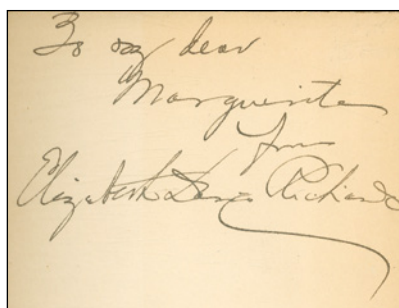 To my dear
Marguerite
from
Elizabeth Davis Richards